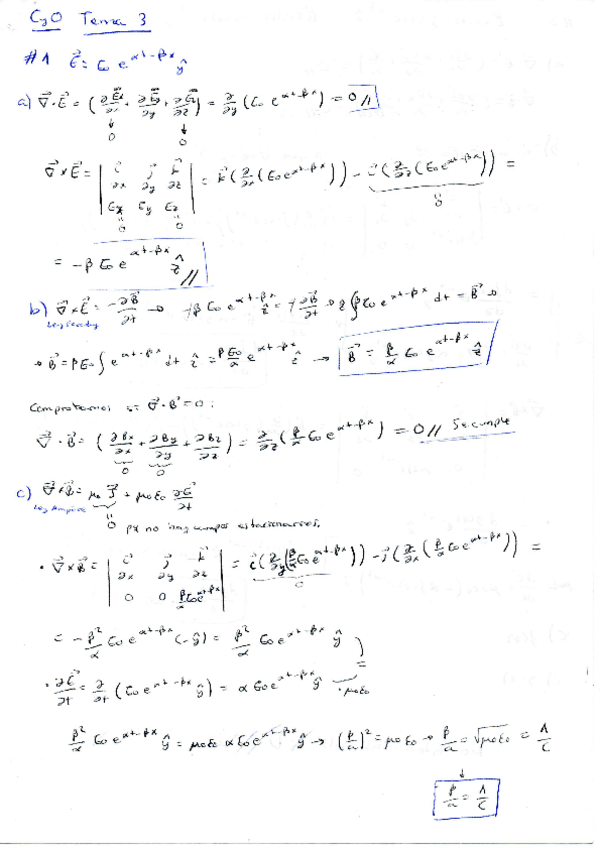 CyO Tema 3
#1 E⃗ = E₀ e^(αt-βx) ŷ
a) ∇⃗·E⃗ = (∂Ex/∂x + ∂Ey/∂y + ∂Ez/∂z) = ∂/∂y (E₀ e^(αt-βx)) = 0 //
↓ 0 ↓ 0
∇⃗×E⃗ = | i⃗ j⃗ k⃗ | = k⃗(∂/∂x (E₀ e^(αt-βx))) - i⃗(∂/∂z (E₀ e^(αt-βx))) =
∂x ∂y ∂z
Ex Ey Ez
0 0 0
= -β E₀ e^(αt-βx) ẑ //
b) ∇⃗×E⃗ = -∂B⃗/∂t → -β E₀ e^(αt-βx) ẑ = -∂B⃗/∂t → ∫β E₀ e^(αt-βx) dt = B⃗ →
→ B⃗ = β E₀ ∫ e^(αt-βx) dt ẑ = βE₀/α e^(αt-βx) ẑ → B⃗ = β/α E₀ e^(αt-βx) ẑ
Comprobamos si ∇⃗·B⃗ = 0:
∇⃗·B⃗ = (∂Bx/∂x + ∂By/∂y + ∂Bz/∂z) = ∂/∂z (β/α E₀ e^(αt-βx)) = 0 // Se cumple
0 0
c) ∇⃗×B⃗ = μ₀ J⃗ + μ₀ε₀ ∂E⃗/∂t
Ley Ampère
0 px no hay campos estacionarios.
• ∇⃗×B⃗ = | i⃗ j⃗ k⃗ | = i⃗(∂/∂y (β/α E₀ e^(αt-βx))) - j⃗(∂/∂x (β/α E₀ e^(αt-βx))) =
∂x ∂y ∂z
0 0 β/α E₀ e^(αt-βx)
0
= -β²/α E₀ e^(αt-βx) (-ŷ) = β²/α E₀ e^(αt-βx) ŷ
=
• ∂E⃗/∂t = ∂/∂t (E₀ e^(αt-βx) ŷ) = α E₀ e^(αt-βx) ŷ · μ₀ε₀
β²/α E₀ e^(αt-βx) ŷ = μ₀ε₀ α E₀ e^(αt-βx) ŷ → (β/α)² = μ₀ε₀ → β/α = √μ₀ε₀ = 1/c
↓
β/α = 1/c